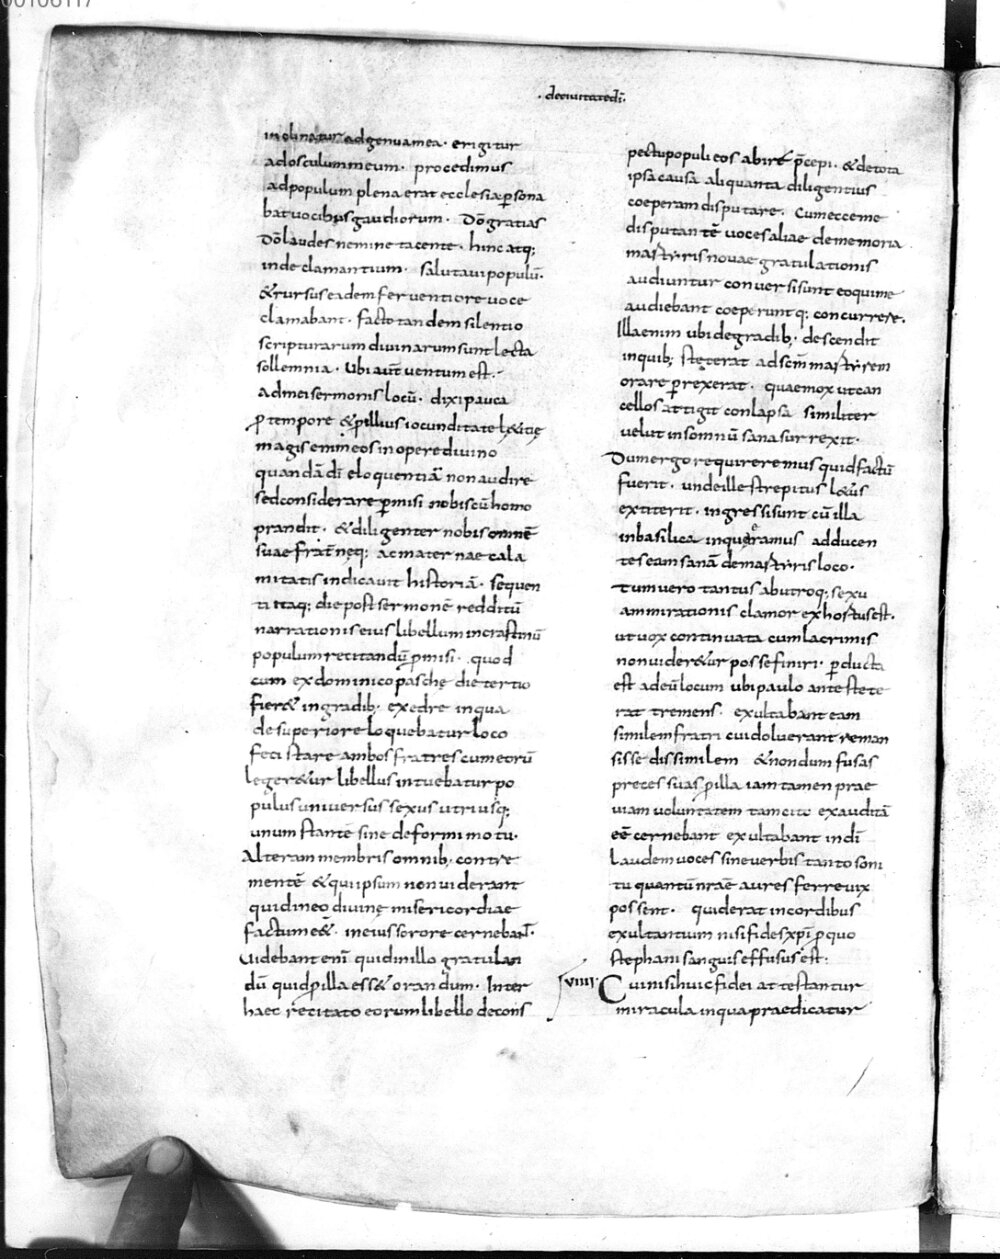 00106117
· decivitatedī ·
inclinatur adgenuamea · erigitur
adosculummeum · procedimus
adpopulum plena erat ecclesia psona
batvocibus gaudiorum · Dōgratias
Dōlaudes nemine tacente · hincatq;
indeclamantium · salutavipopulū ·
&rursus eadem ferventiore voce
clamabant · facto tandem silentio
scripturarum divinarum sunt lecta
sollemnia · Ubi aut̄ ventum est ·
admei sermonis locū · dixi pauca
ptempore &pillius iocunditate l&itię
magis enim eos in opere divino
quandā dī eloquentiā non audire
sed considerare pmisi nobiscū homo
prandit · &diligenter nobis omnē
suae frat̄neq; ac maternae cala
mitatis indicavit historiā · Sequen
ti itaq; die post sermonē redditū
narrationis eius libellum incrastinū
populum recitandū pmisi · quod
cum ex dominico paschę die tertio
fier& ingradib; exedre inqua
desuperiore loquebatur loco
feci stare ambos fratres cum eorū
leger&ur libellus intuebatur po
pulus universus sexus utriusq;
unum stantē sine deformi motu ·
Alteram membris omnib; contre
mentē &qui ipsum non viderant
quid in eo divinę misericordiae
factum e& · in eius sorore cernebant ·
Videbant enī quid in illo gratulan
dū quid pilla ess& orandum · Inter
haec recitato eorum libello decons
pectu populi eos abire p̄cepi · &detota
ipsa causa aliquanta diligentius
coeperam disputare · Cum ecce me
disputantē voces aliae de memoria
martyris novae gratulationis
audiuntur conversi sunt eo qui me
audiebant coeperuntq; concurrere ·
Illa enim ubi de gradib; descendit
in quib; steterat ad sc̄m martyrem
orare prexerat · quae mox ut can
cellos attigit conlapsa similiter
velut in somnū sana surrexit ·
Dum ergo requireremus quid factū
fuerit · unde ille strepitus l&us
extiterit · ingressi sunt cū illa
in basilica inqua eramus adducen
tes eam sanā de martyris loco ·
Tum vero tantus ab utroq; sexu
ammirationis clamor exhortus est ·
ut vox continuata cum lacrimis
non vider&ur posse finiri · pducta
est ad eū locum ubi paulo ante stete
rat tremens · exultabant eam
similem fratri cui doluerant reman
sisse dissimilem &nondum fusas
preces suas pilla iam tamen prae
viam voluntatem tam cito exauditā
eē cernebant exultabant in dī
Laudem voces sine verbis tanto soni
tu quantū nrāe aures ferre vix
possent · quid erat in cordibus
exultantium nisi fides xpī pquo
stephani sanguis effusus est ·
VIIII · Cui nisi huic fidei attestantur
miracula inqua praedicatur